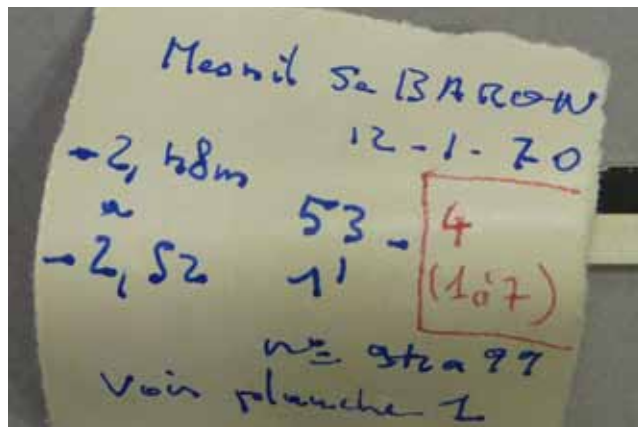 Mesnil Sa BARON
12-1-70
-2,48m
a
-2,52
53 - 4
11 (1à7)
voir planche 1